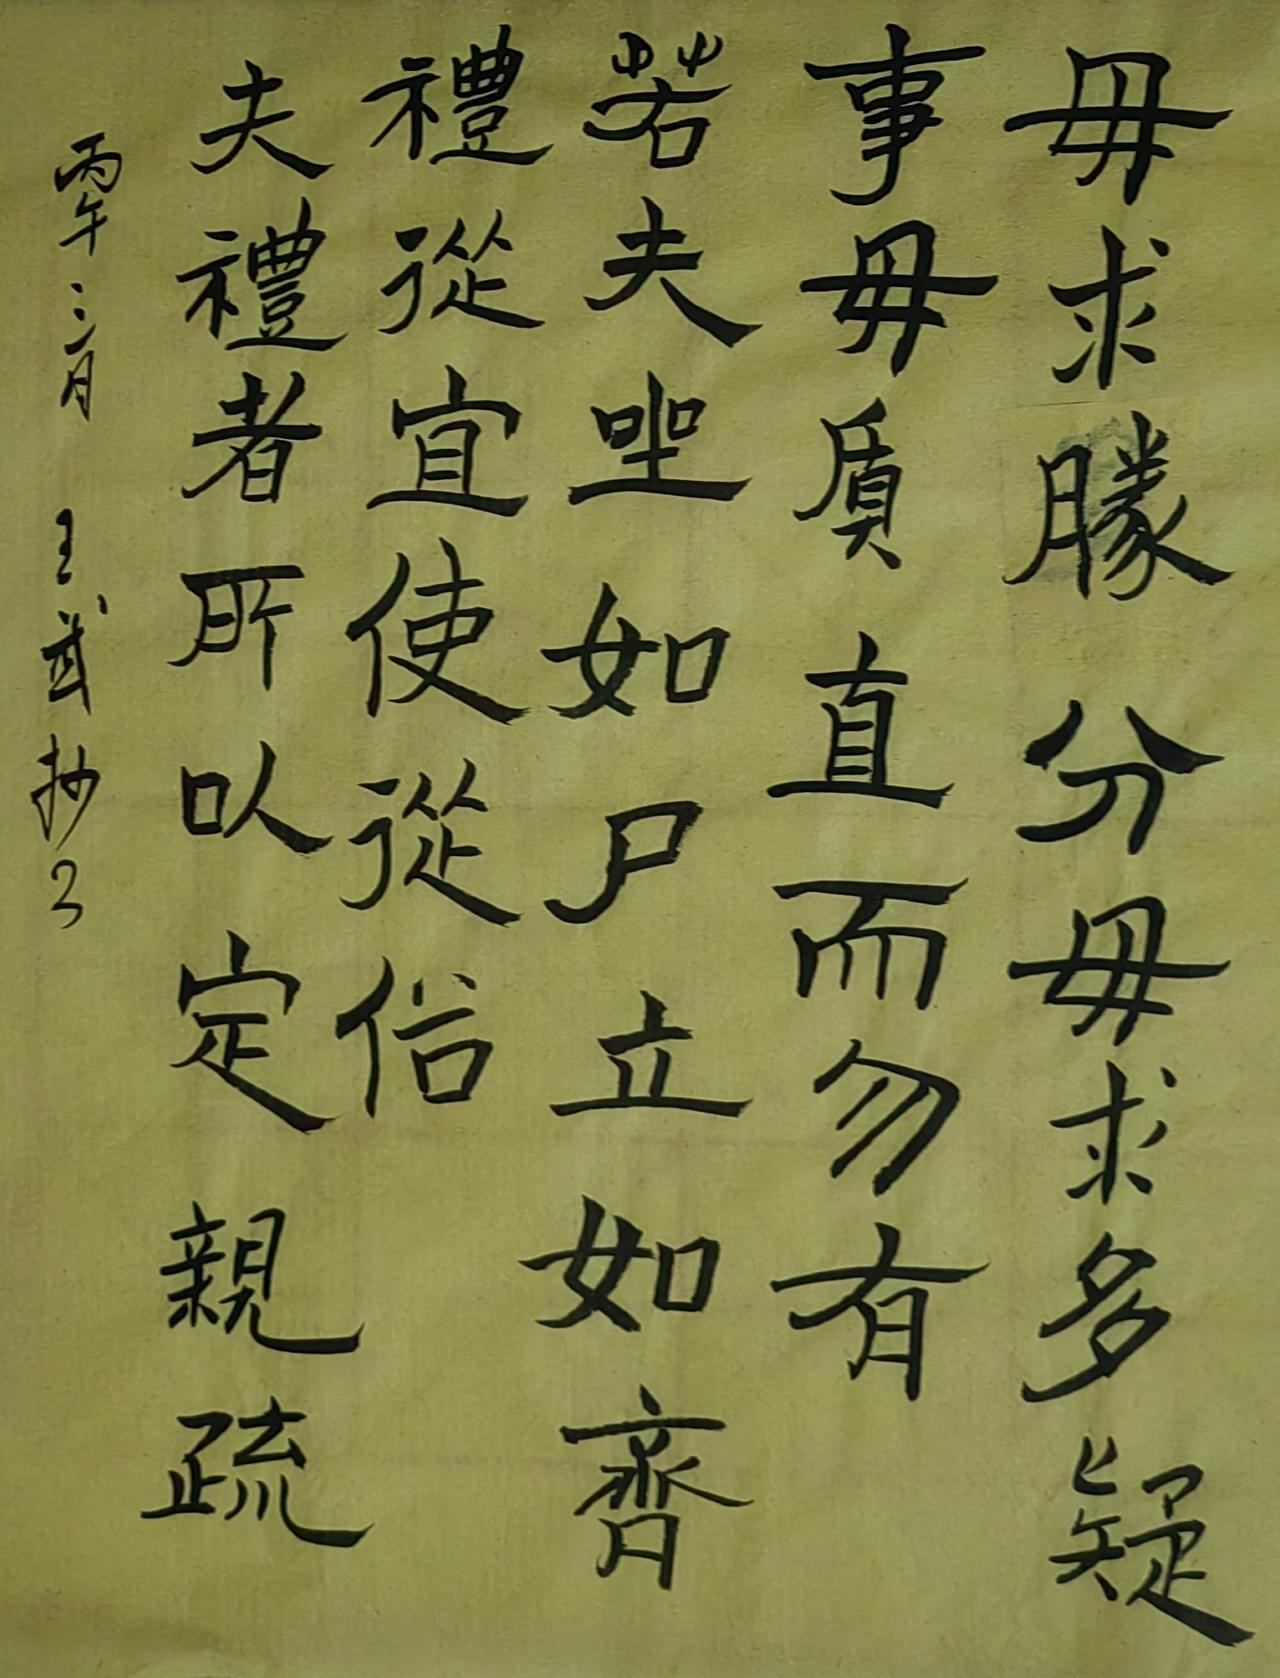 毋求勝分毋求多疑
事毋質直而勿有
若夫坐如尸立如齊
禮從宜使從俗
夫禮者所以定親疏
丙午三月 王武抄